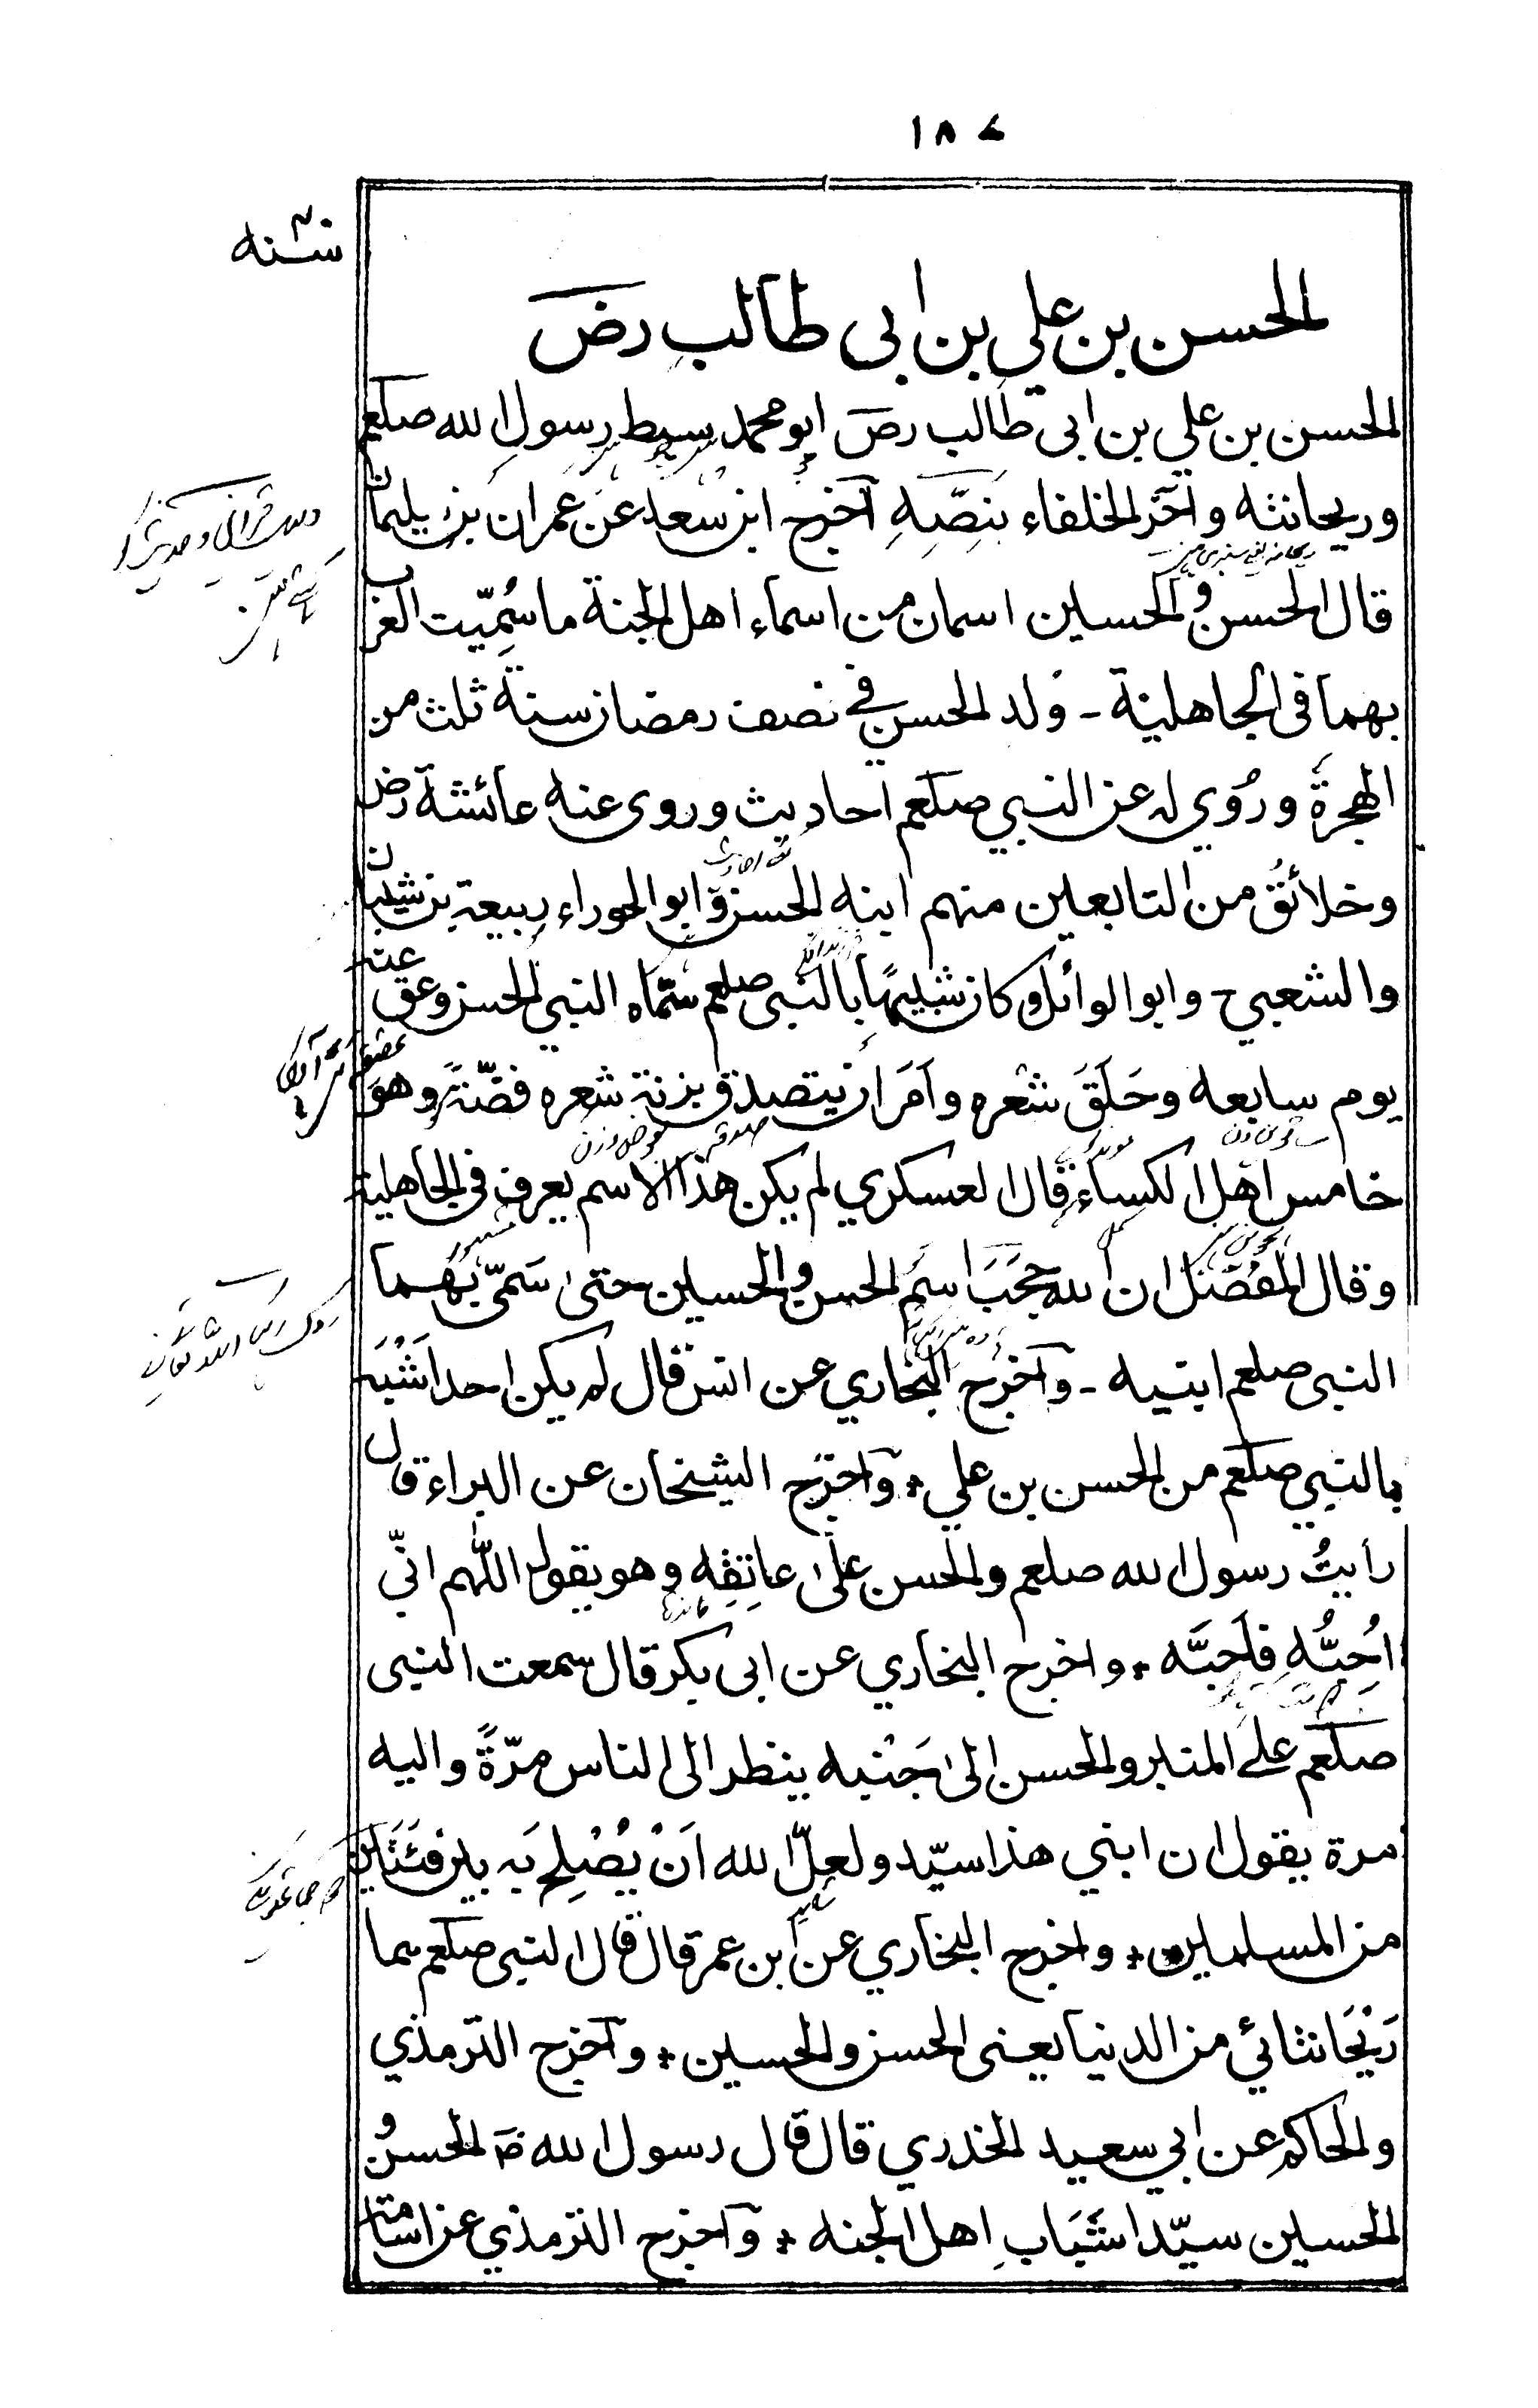 ١٨٤
الحسن بن علي بن ابى طالب رضؔ
الحسن بن علي بن ابى طالب رضؔ ابو محمد سبط رسول الله صلعم
وريحانته وآخر الخلفاء بِنَصِّهِ آخرج ابن سعد عن عمران بن سليمان
قال الحسن والحسين اسمان من اسماء اهل الجنة ما سُمِّيت العرب
بهما فى الجاهلية ـ وُلد الحسن في نصف رمضان سنة ثلث من
الهجرة ورُوي له عن النبي صلعم احاديث وروى عنه عائشة رض
وخلائقُ من التابعين منهم ابنه الحسن وابو الحوراء ربيعة بن شيبان
والشعبي وابو الوائل وكان شبيهًا بالنبى صلعم سمّاه النبي الحسن وعق عنه
يوم سابعه وحَلَقَ شعره واَمَر ان يتصدق بزنة شعره فضّةً وهو
خامس اهل الكساء قال العسكري لم يكن هذا الاسم يعرف فى الجاهلية
وقال المفضّل ان الله حجَبَ اسم الحسن والحسين حتىٰ سَمّى بهما
النبى صلعم ابنيه ـ وآخرج البخاري عن انس قال لم يكن احد اَشْبَه
بالنبي صلعم من الحسن بن علي * وآخرج الشيخان عن البراء قال
رأيتُ رسول الله صلعم والحسن علىٰ عاتِقِه وهو يقول اللّٰهم انّي
اُحِبُّه فاَحِبَّه * واخرج البخاري عن ابى بكر قال سمعت النبى
صلعم على المنبر والحسن الىٰ جَنْبه ينظر الى الناس مرّةً واليه
مرة يقول ان ابني هذا سيّد ولعلّ الله اَنْ يُصْلِحَ به بين فئتَين
من المسلمين * واخرج البخاري عن ابن عمر قال قال النبى صلعم هما
رَيْحَانتائي من الدنيا يعنى الحسن والحسين * وآخرج الترمذي
والحاكم عن ابي سعيد الخدري قال قال رسول الله صؔ الحسن و
الحسين سيّدا شَبَابِ اهل الجنه * وآخرج الترمذي عن اسامة